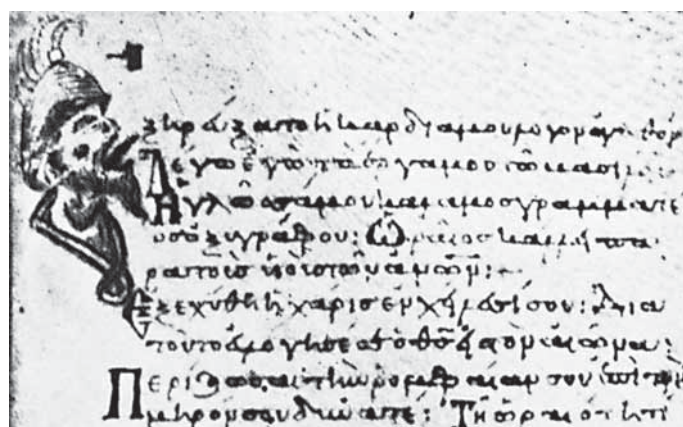 ξηρεύξατο ἡ καρδία μου λόγον ἀγαθόν
Λέγω ἐγὼ τὰ ἔργα μου τῷ βασιλεῖ:
Ἡ γλῶσσα μου κάλαμος γραμματέ
ως ὀξυγράφου: Ὡραῖος κάλλει πα
ρὰ τοὺς υἱοὺς τῶν ἀνῶν:
Ἐξεχύθη ἡ χάρις ἐν χείλεσί σου: Διὰ
τοῦτο εὐλόγησέ σε ὁ θς εἰς τὸν αἰῶνα:
Περίζωσαι τὴν ῥομφαίαν σου ἐπὶ τὸν
μηρόν σου δυνατέ: Τῆ ὡραιότητι